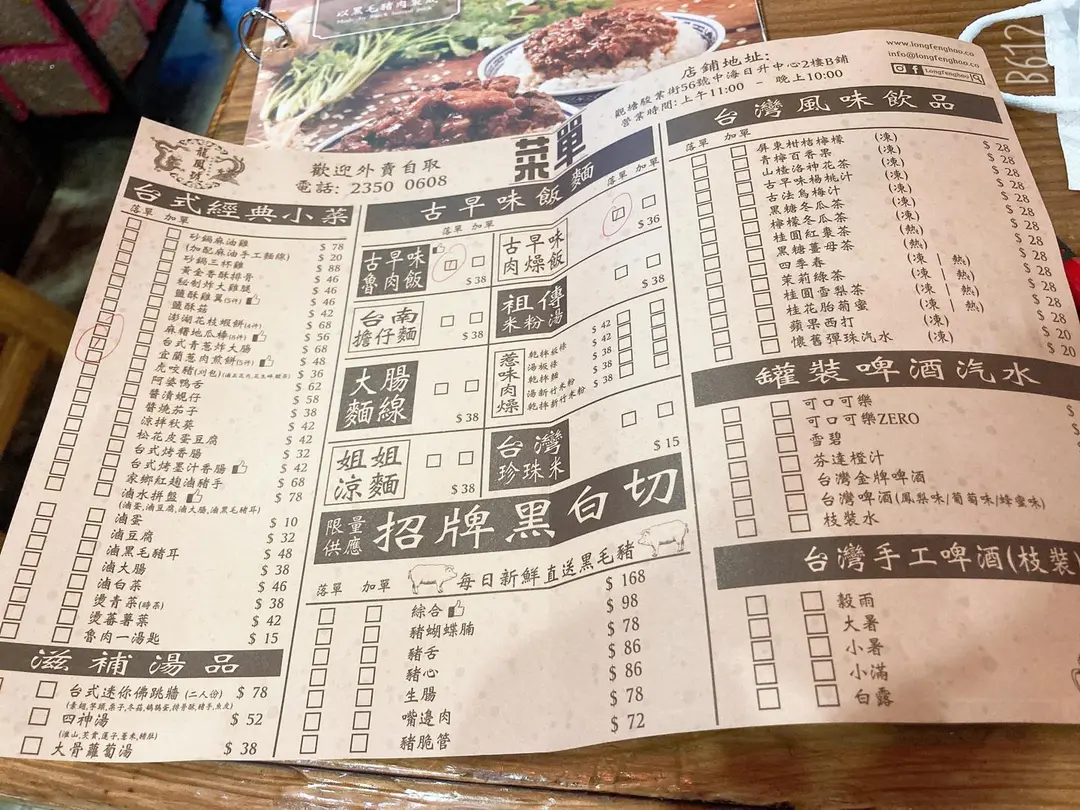 以黑毛豬肉製成
B612
龍鳳號
歡迎外賣自取
電話: 2350 0608
菜單
店鋪地址:
觀塘駿業街56號中海日升中心2樓B鋪
營業時間: 上午11:00 - 晚上10:00
www.longfenghao.com
info@longfenghao.com
Longfenghao
台式經典小菜
落單 加單
砂鍋麻油雞 $ 78
(加配麻油手工麵線) $ 20
砂鍋三杯雞 $ 88
黃金香酥排骨 $ 46
秘制炸大雞腿 $ 46
鹽酥雞翼(5件) $ 46
鹽酥菇 $ 42
澎湖花枝蝦餅(4件) $ 68
麻糬地瓜棒(6件) $ 56
台式青蔥炸大腸 $ 68
宜蘭蔥肉煎餅(5件) $ 48
虎咬豬(刈包) $ 36
阿婆鴨舌 $ 62
醬漬蜆仔 $ 58
醬燒茄子 $ 38
涼拌秋葵 $ 42
松花皮蛋豆腐 $ 42
台式烤香腸 $ 32
台式烤墨汁香腸 $ 42
家鄉紅麴油豬手 $ 68
滷水拼盤 $ 78
(滷蛋,滷豆腐,滷大腸,滷黑毛豬耳)
滷蛋 $ 10
滷豆腐 $ 32
滷黑毛豬耳 $ 48
滷大腸 $ 38
滷白菜 $ 46
燙青菜(時菜) $ 38
燙蕃薯葉 $ 42
魯肉一湯匙 $ 15
滋補湯品
台式迷你佛跳牆 (二人份) $ 78
四神湯 $ 52
(淮山,芡實,蓮子,薏米,豬肚)
大骨蘿蔔湯 $ 38
古早味飯麵
落單 加單
落單 加單
古早味魯肉飯 $ 38
古早味肉燥飯 $ 36
台南擔仔麵 $ 38
祖傳米粉湯 $ 38
大腸麵線 $ 38
惹味肉燥
乾拌板條 $ 42
湯板條 $ 42
乾拌麵 $ 38
湯新竹米粉 $ 38
乾拌新竹米粉 $ 38
姐姐涼麵 $ 38
台灣珍珠米 $ 15
限量供應 招牌黑白切
落單 加單
每日新鮮直送黑毛豬
綜合 $ 168
豬蝴蝶腩 $ 98
豬舌 $ 78
豬心 $ 86
生腸 $ 86
嘴邊肉 $ 78
豬脆管 $ 72
台灣風味飲品
落單 加單
屏東柑桔檸檬 (熱) $ 28
青檸百香果 (凍) $ 28
山楂洛神花茶 (凍) $ 28
古早味楊桃汁 (凍) $ 28
古法烏梅汁 (凍) $ 28
黑糖冬瓜茶 (凍) $ 28
檸檬冬瓜茶 (凍) $ 28
桂圓紅棗茶 (熱) $ 28
黑糖薑母茶 (熱) $ 28
四季春 (凍 | 熱) $ 28
茉莉綠茶 (凍 | 熱) $ 28
桂圓雪梨茶 (凍 | 熱) $ 28
桂花胎菊蜜 (凍 | 熱) $ 28
蘋果西打 (凍) $ 20
懷舊彈珠汽水 (凍) $ 20
罐裝啤酒汽水
可口可樂
可口可樂ZERO
雪碧
芬達橙汁
台灣金牌啤酒
台灣啤酒(鳳梨味/葡萄味/蜂蜜味)
枝裝水
台灣手工啤酒(枝裝)
穀雨
大暑
小暑
小滿
白露